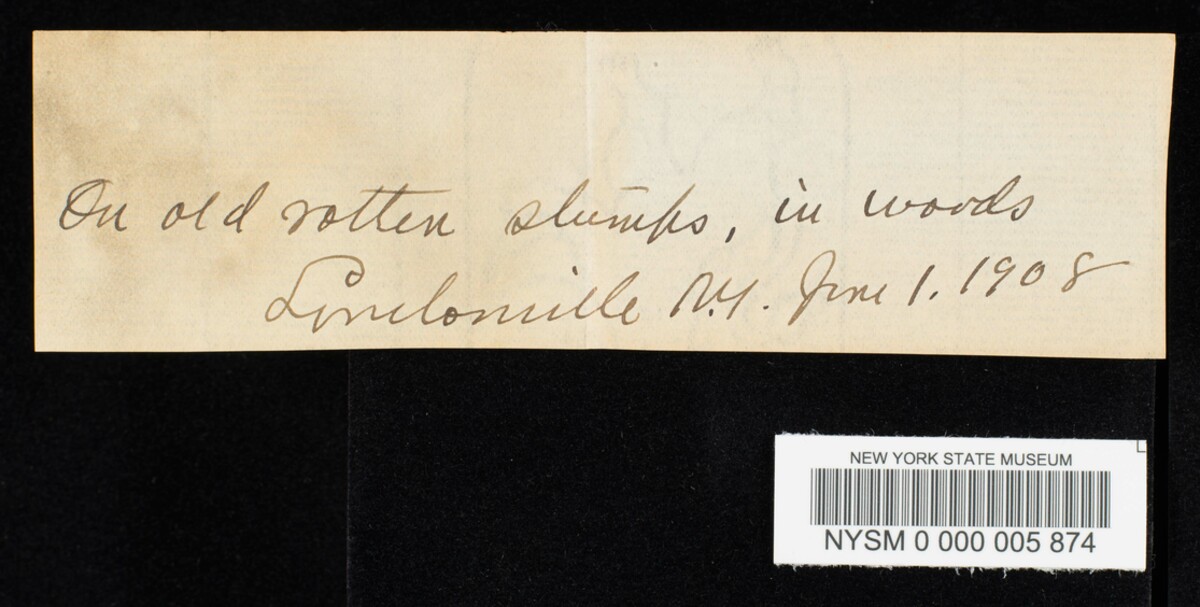 On old rotten stumps, in woods
Lyndonville N.Y. June 1. 1908
NEW YORK STATE MUSEUM
NYSM 0 000 005 874